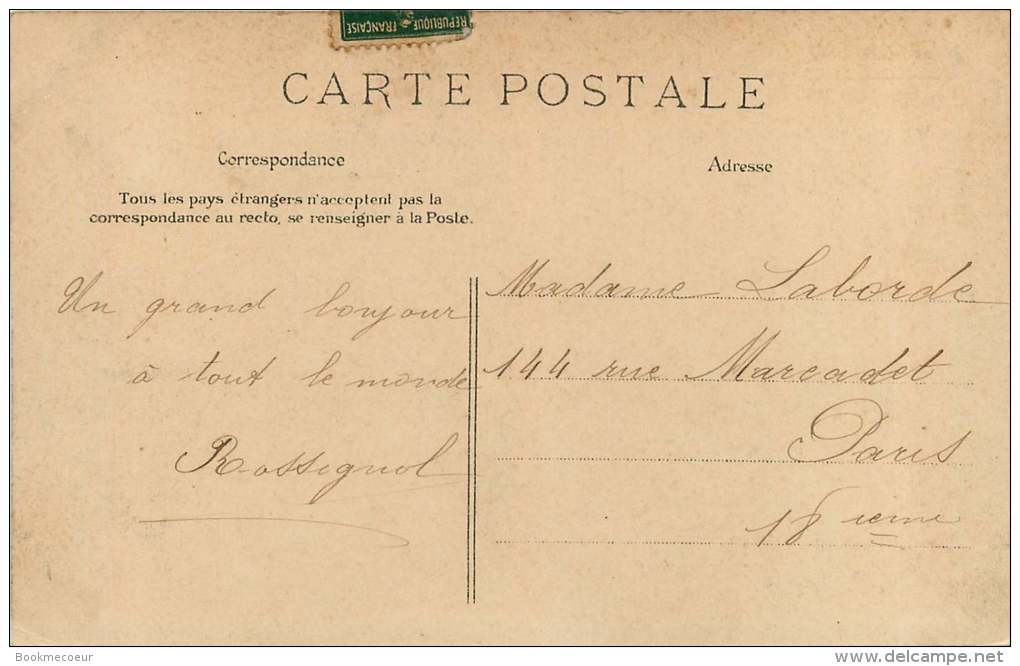 REPUBLIQUE FRANÇAISE
CARTE POSTALE
Correspondance
Tous les pays étrangers n'acceptent pas la
correspondance au recto, se renseigner à la Poste.
Un grand bonjour
à tout le monde
Rossignol
Adresse
Madame Laborde
144 rue Marcadet
Paris
18 ieme
Bookmecoeur
http://www.delcampe.net